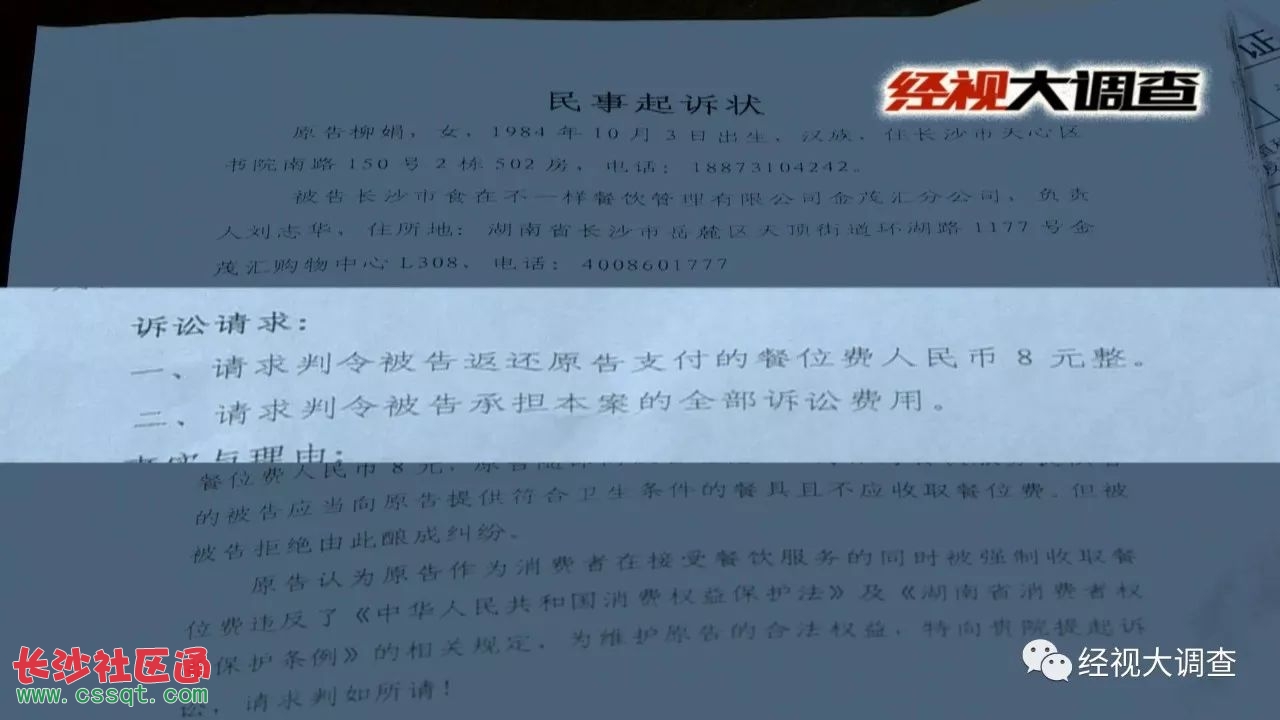 经视大调查
民事起诉状
原告柳娟，女，1984年10月3日出生，汉族，住长沙市天心区
书院南路150号2栋502房，电话：18873104242。
被告长沙市食在不一样餐饮管理有限公司金茂汇分公司，负责
人刘志华，住所地：湖南省长沙市岳麓区天顶街道环湖路1177号金
茂汇购物中心L308，电话：4008601777
诉讼请求：
一、请求判令被告返还原告支付的餐位费人民币8元整。
二、请求判令被告承担本案的全部诉讼费用。
事实与理由：
餐位费人民币8元，原告随即
的被告应当向原告提供符合卫生条件的餐具且不应收取餐位费。但被
被告拒绝由此酿成纠纷。
原告认为原告作为消费者在接受餐饮服务的同时被强制收取餐
位费违反了《中华人民共和国消费权益保护法》及《湖南省消费者权
保护条例》的相关规定，为维护原告的合法权益，特向贵院提起诉
讼，请求判如所请！
长沙社区通
www.cssqt.com
经视大调查
证